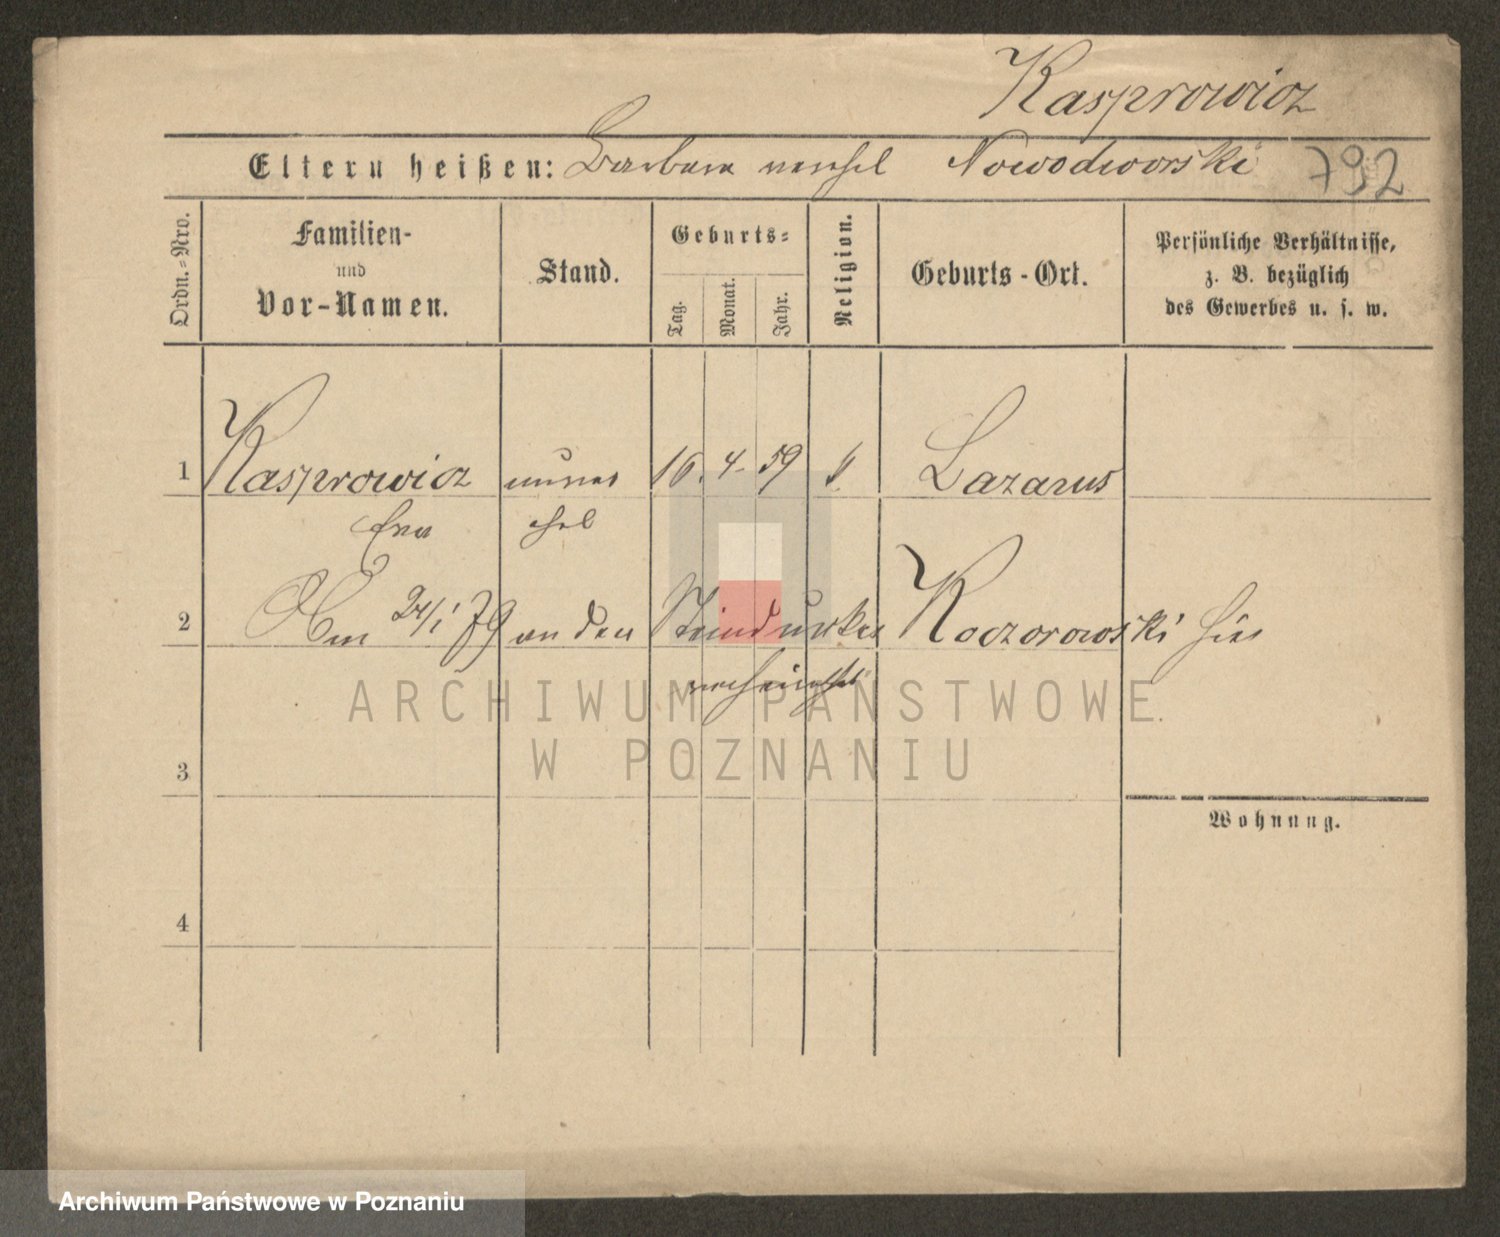 Kasprowicz
Eltern heißen: Barbara verehel Nowodworski 792
Ordn.-Nro.
Familien-
und
Vor-Namen.
Stand.
Geburts-
Tag.
Monat.
Jahr.
Religion.
Geburts-Ort.
Persönliche Verhältnisse,
z. B. bezüglich
des Gewerbes u. s. w.
1 Kasprowicz unver 16. 4. 59 Lazarus
Eva ehel
2 Am 24/1 79 an den Steindrucker Koczorowski hier
verheirathet
3
Wohnung.
4
ARCHIWUM PAŃSTWOWE
W POZNANIU
Archiwum Państwowe w Poznaniu